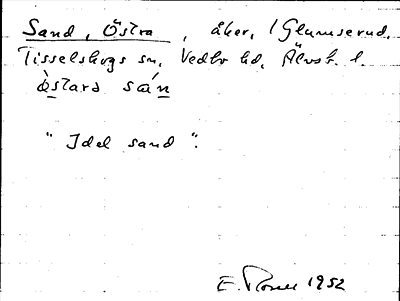 Sand, Östra, åker, / Glumserud.
Tisselskogs sn. Vedbo hd. Älvsb. l.
ö̀stara sán
"Idel sand".
E. 1952